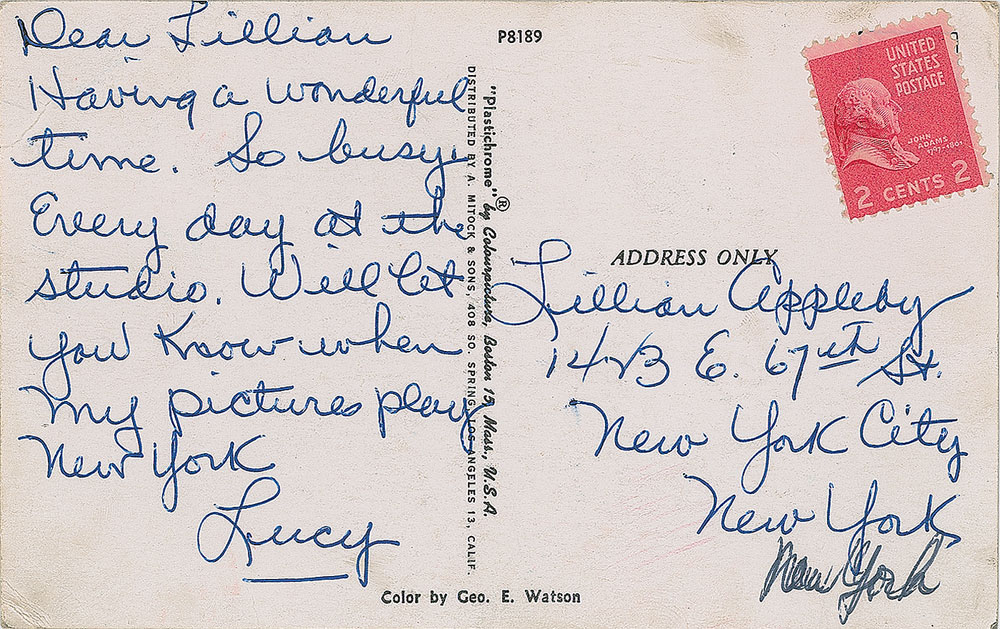 Dear Lillian
Having a wonderful
time. So busy.
Every day at the
studio. Will let
you know when
my pictures play
New York
Lucy
P8189
"Plastichrome"® by Colourpicture, Boston 15, Mass., U.S.A.
DISTRIBUTED BY A. MITOCK & SONS, 408 SO. SPRING, LOS ANGELES 13, CALIF.
UNITED
STATES
POSTAGE
JOHN
ADAMS
1797-1801
2 CENTS 2
ADDRESS ONLY
Lillian Appleby
14 B E. 67th St.
New York City
New York
New York
Color by Geo. E. Watson